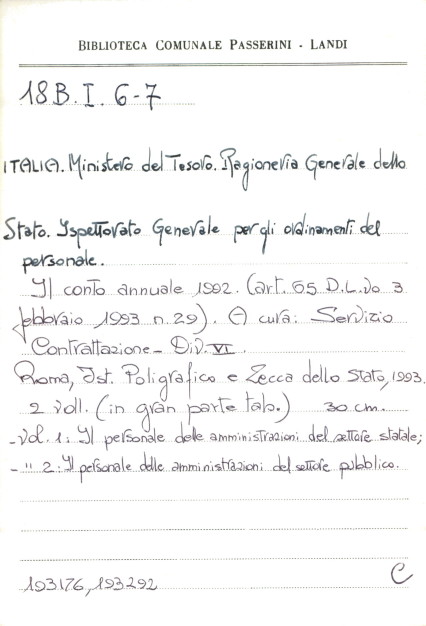 BIBLIOTECA COMUNALE PASSERINI - LANDI
18B.I. 6-7
ITALIA. Ministero del Tesoro. Ragioneria Generale dello
Stato. Ispettorato Generale per gli ordinamenti del
personale.
Il conto annuale 1992. (art. 65 D.L.vo 3
febbraio 1993 n. 29). A cura: Servizio
Contrattazione - Div. VI.
Roma, Ist. Poligrafico e Zecca dello Stato, 1993.
2 voll. (in gran parte tab.) 30 cm.
- vol. 1: Il personale delle amministrazioni del settore statale;
- " 2: Il personale delle amministrazioni del settore pubblico.
193176, 193292
C